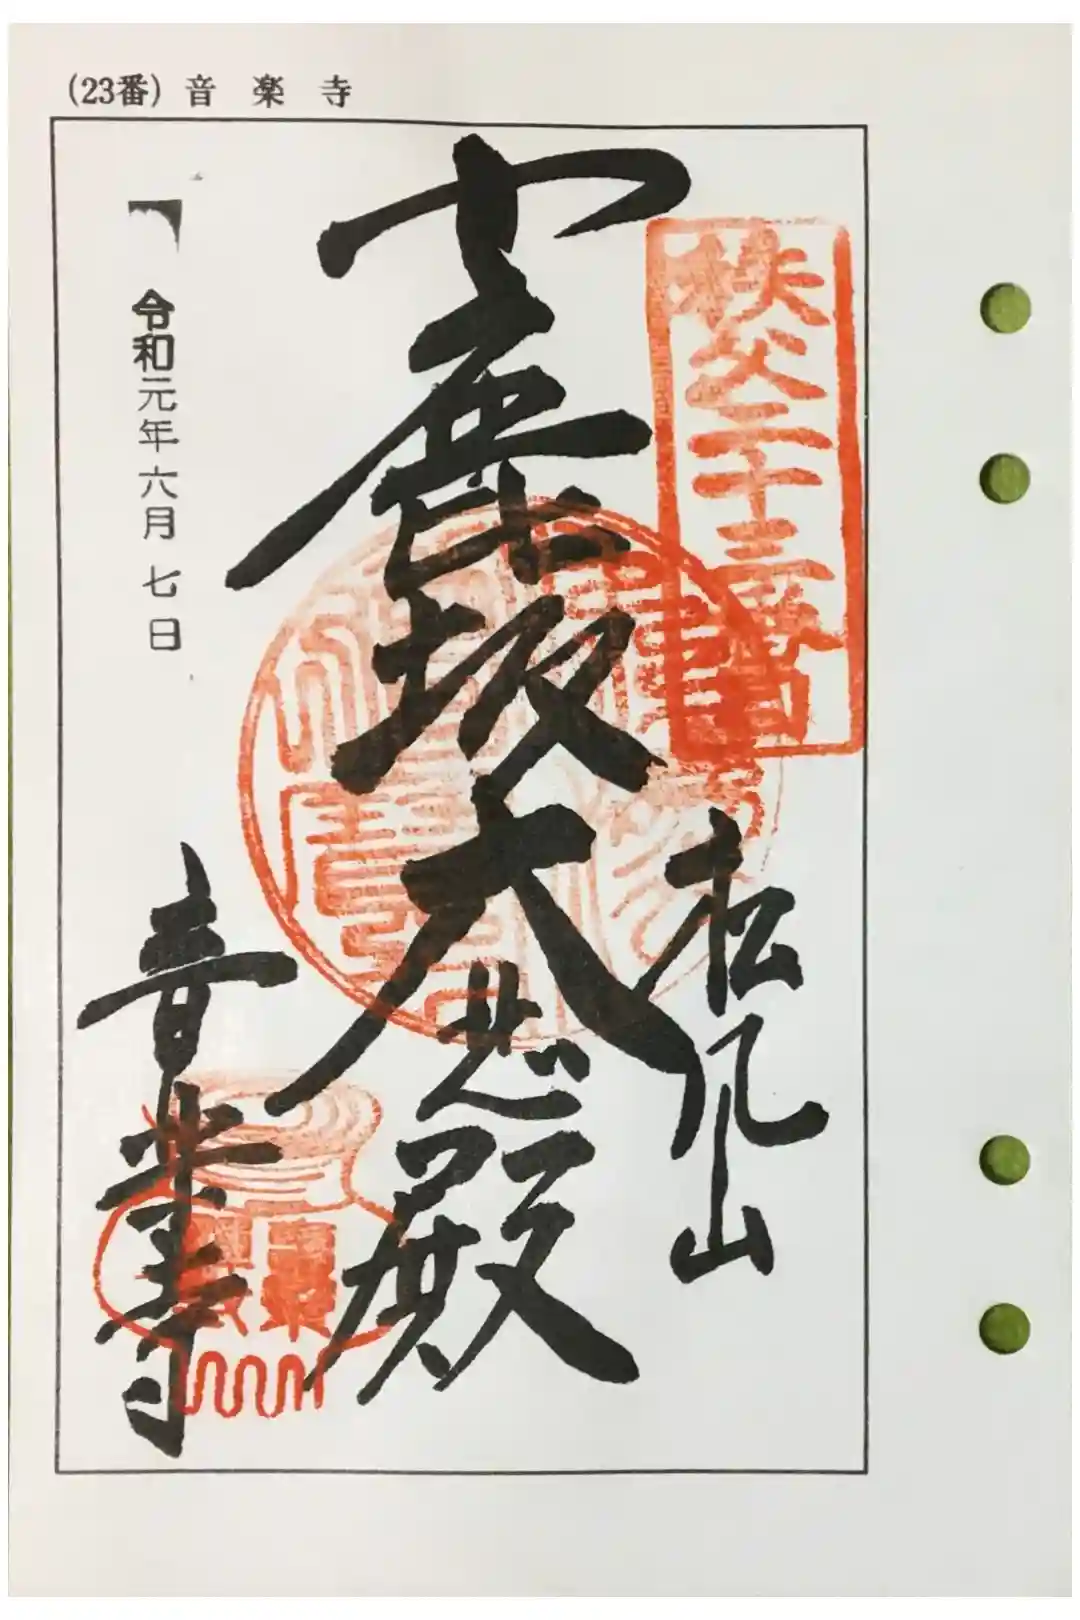 (23番) 音楽寺
秩父二十三番
松風山
小鹿坂大悲殿
令和元年六月七日
音楽寺